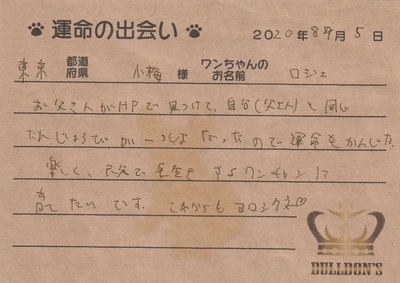 運命の出会い
2020年8月5日
東京 都道府県 小梅 様 ワンちゃんのお名前 ロジェ
お父さんがHPで見つけて、自分(父さん)と同じ
たんじょうびが一つしょだったので運命をかんじた。
楽しく、元気で長生きするワンチャンに
育てたいです。これからもヨロシクネ♡
BULLDON'S